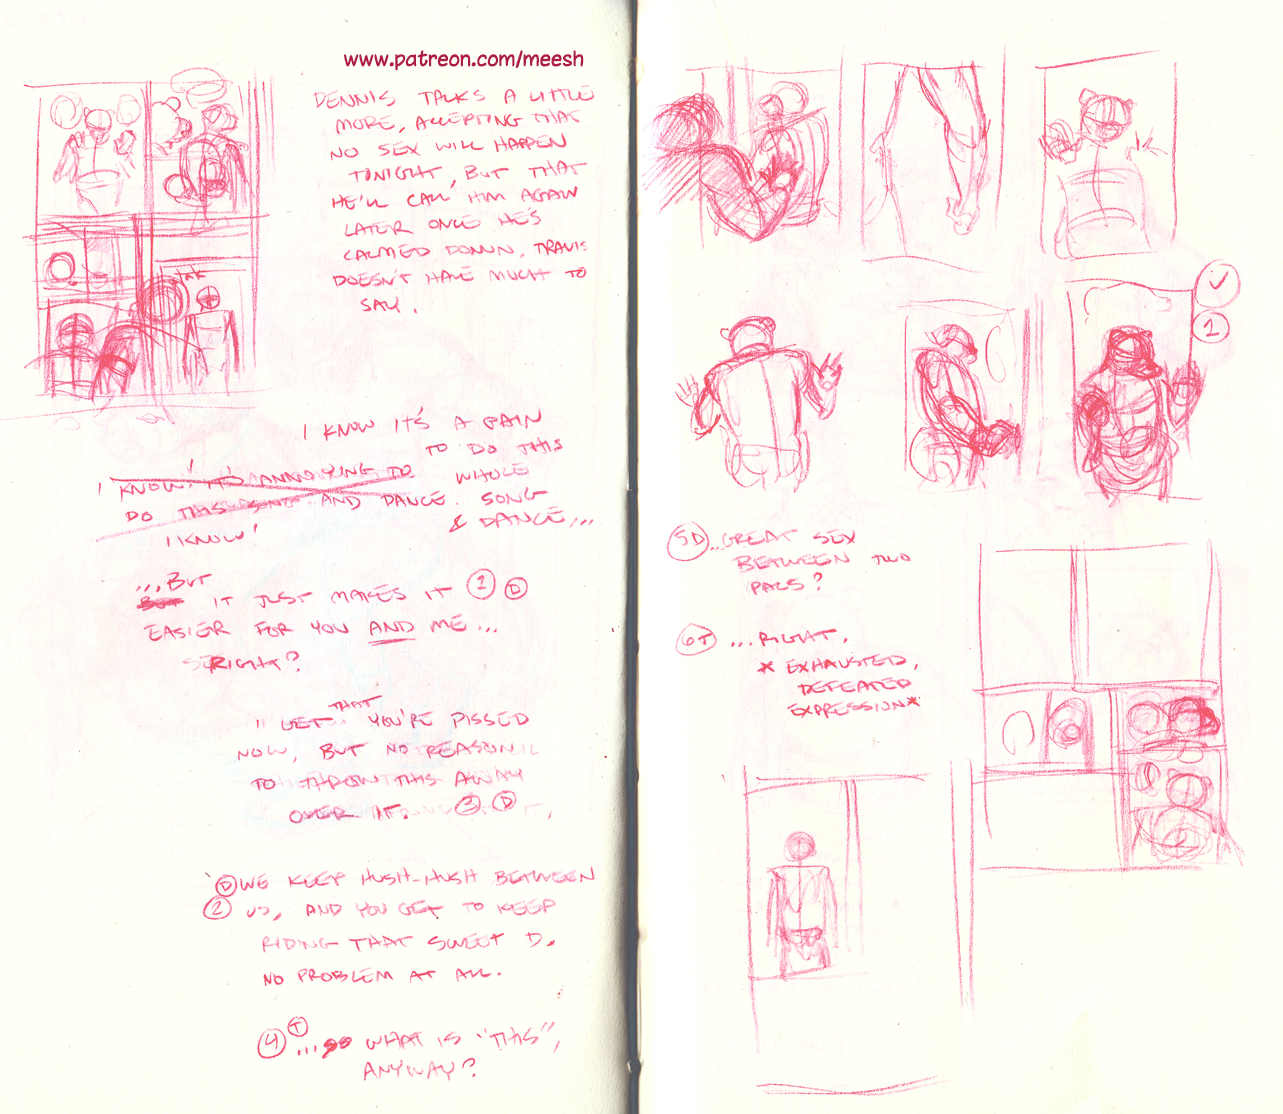 www.patreon.com/meesh
DENNIS TALKS A LITTLE
MORE, ACCEPTING THAT
NO SEX WILL HAPPEN
TONIGHT, BUT THAT
HE'LL CALL HIM AGAIN
LATER ONCE HE'S
CALMED DOWN, TRAVIS
DOESN'T HAVE MUCH TO
SAY.
TNK
I KNOW IT'S A PAIN
TO DO THIS
WHOLE
SONG
& DANCE...
I KNOW IT'S ANNOYING TO
DO THIS SONG AND DANCE.
I KNOW!
...BUT
BUT IT JUST MAKES IT 1 D
EASIER FOR YOU AND ME...
RIGHT?
THAT
I GET YOU'RE PISSED
NOW, BUT NO REASON
TO THROW THIS AWAY
OVER IT. 3 D
D WE KEEP HUSH-HUSH BETWEEN
2 US, AND YOU GET TO KEEP
RIDING THAT SWEET D.
NO PROBLEM AT ALL.
4 T ...SO WHAT IS "THIS",
ANYWAY?
1
5D ...GREAT SEX
BETWEEN TWO
PALS?
6T ...RIGHT.
* EXHAUSTED,
DEFEATED
EXPRESSION*